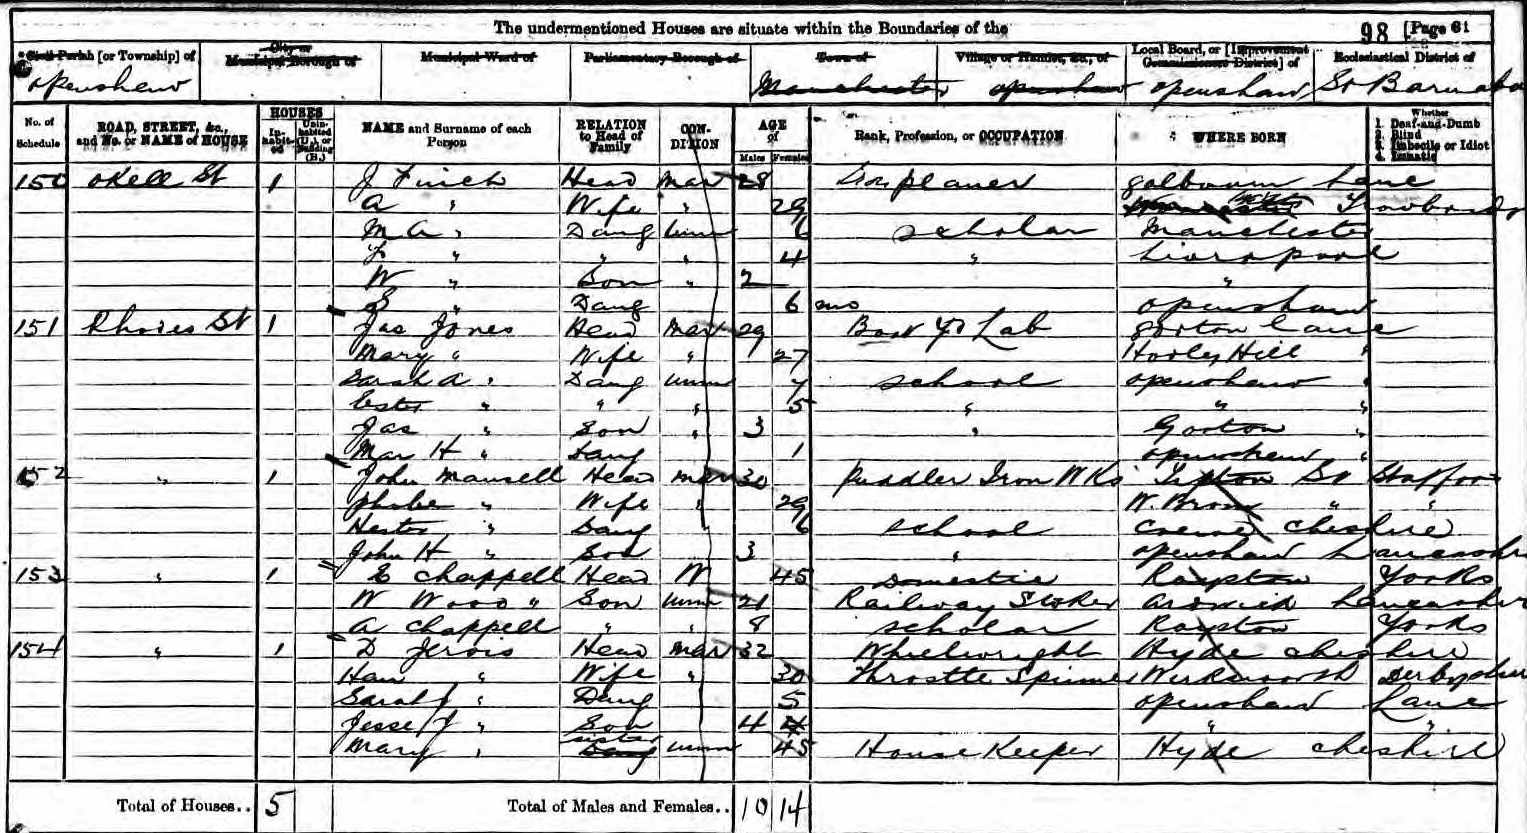 The undermentioned Houses are situate within the Boundaries of the 98 [Page 61
Civil Parish [or Township] of City or Municipal Borough of Municipal Ward of Parliamentary Borough of Town of Village or Hamlet, &c., of Local Board, or [Improvement Commissioners District] of Ecclesiastical District of
Openshaw Manchester Openshaw Openshaw St Barnaba
No. of Schedule ROAD, STREET, &c., and No. or NAME of HOUSE HOUSES In-habit-ed Unin-habited (U.), or Building (B.) NAME and Surname of each Person RELATION to Head of Family CON-DITION AGE of Males Females Rank, Profession, or OCCUPATION WHERE BORN Whether 1. Deaf-and-Dumb 2. Blind 3. Imbecile or Idiot 4. Lunatic
150 Okell St 1 J Finch Head Mar 28 planer Lane
A " Wife " 29 Trowbridg
M A " Daug Unm 6 scholar Manchester
" " " 4 " Liverpool
W " Son " 2 "
" Daug 6 mo Openshaw
151 Rhodes St 1 Jas Jones Head Mar 29 Lab Gorton Lane
Mary " Wife " 27 Hooley Hill "
Sarah A " Daug Unm 7 school Openshaw "
Ester " " " 5 " " "
Jas " Son " 3 " Gorton "
Mar H " Daug 1 Openshaw "
152 " 1 John Mansell Head Mar 30 Puddler Iron Wks Tipton St Staffor
Phebe " Wife " 29 W. Brom " "
Hester " Daug " 6 school Crewe Cheshire
John H " Son 3 " Openshaw Lancashir
153 " 1 E Chappell Head W 45 Domestic Royston Yorks
W Wood " Son Unm 21 Railway Stoker Ardwick Lancashir
A Chappell " " 8 scholar Royston Yorks
154 " 1 D Jervis Head Mar 32 Wheelwright Hyde Cheshire
Han " Wife " 30 Throstle Spinner Werksworth Derbyshir
Sarah J " Daug 5 Openshaw Lanc
Jesse J " Son 4 4 " "
Mary " sister Daug Unm 45 House Keeper Hyde Cheshire
Total of Houses.. 5 Total of Males and Females.. 10 14